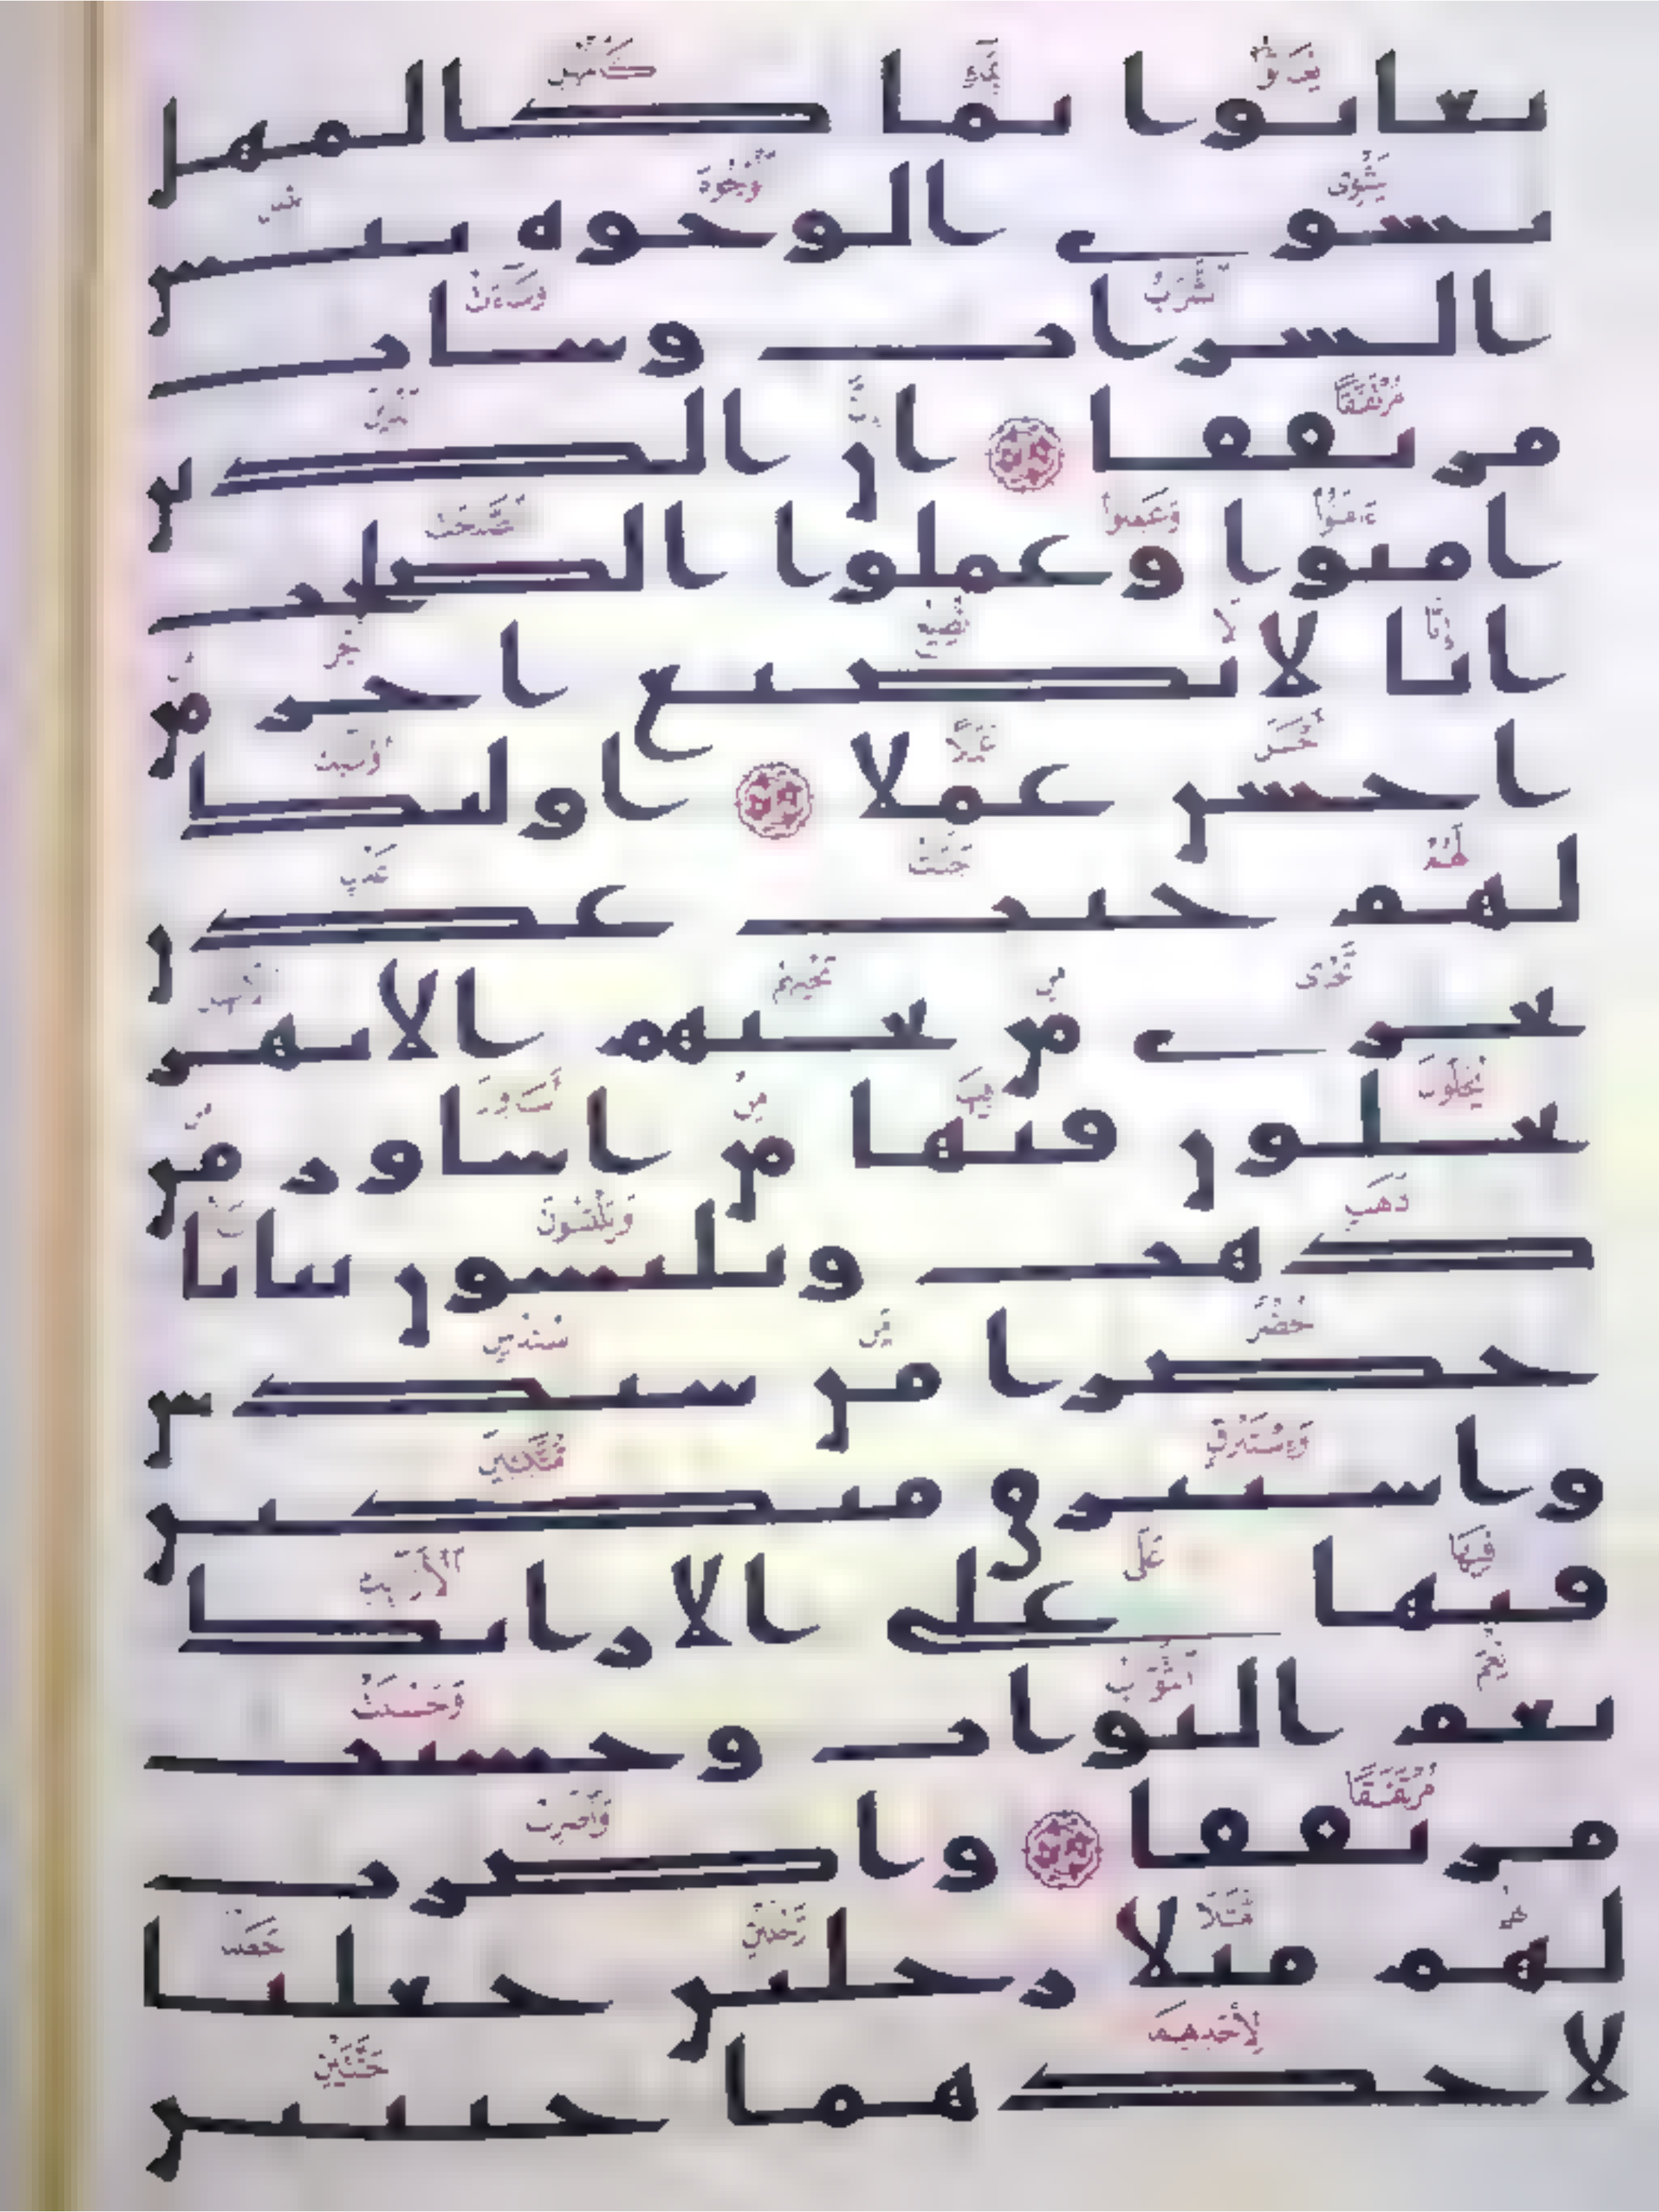 يغاثوا بماء كالمهل
يشوى الوجوه بئس
الشراب وساءت
مرتفقا ان الذين
امنوا وعملوا الصلحت
انا لا نضيع اجر من
احسن عملا اولئك
لهم جنت عدن
تجرى من تحتهم الانهر
يحلون فيها من اساور من
ذهب ويلبسون ثيابا
خضرا من سندس
واستبرق متكئين
فيها على الارائك
نعم الثواب وحسنت
مرتفقا واضرب
لهم مثلا رجلين جعلنا
لاحدهما جنتين